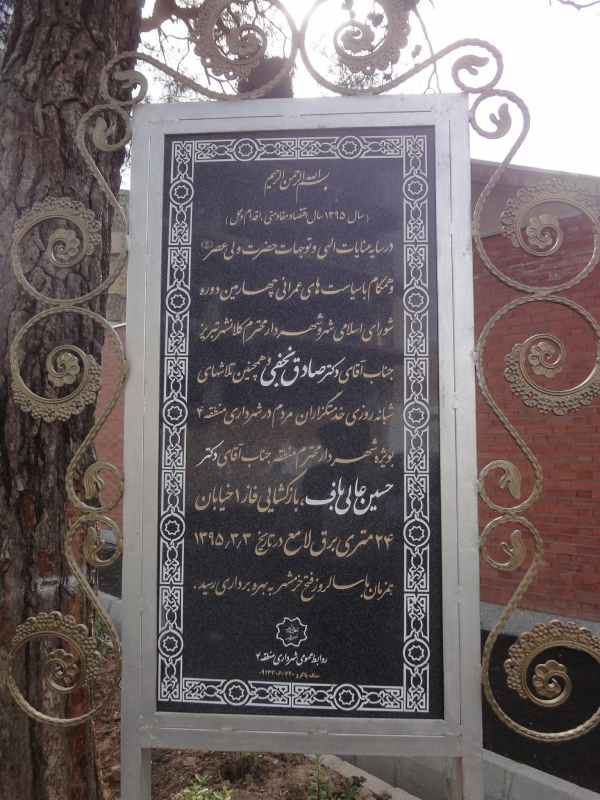 بسم الله الرحمن الرحیم
(سال ۱۳۹۵ سال اقتصاد مقاومتی، اقدام و عمل)
در سایه عنایات الهی و توجهات حضرت ولی عصر (عج)
و همگام با سیاست های عمرانی چهارمین دوره
شورای اسلامی شهر و شهردار محترم کلانشهر تبریز
جناب آقای دکتر صادق نجفی و همچنین تلاشهای
شبانه روزی خدمتگزاران مردم در شهرداری منطقه ۴
بویژه شهردار محترم منطقه جناب آقای دکتر
حسین عالی باف، بازگشایی فاز ۱ خیابان
۲۴ متری برق لامع در تاریخ ۱۳۹۵٫۳٫۳
همزمان با سالروز فتح خرمشهر به بهره برداری رسید.
روابط عمومی شهرداری منطقه ۴
۰۹۱۴۳۰۶۰۷۲۰